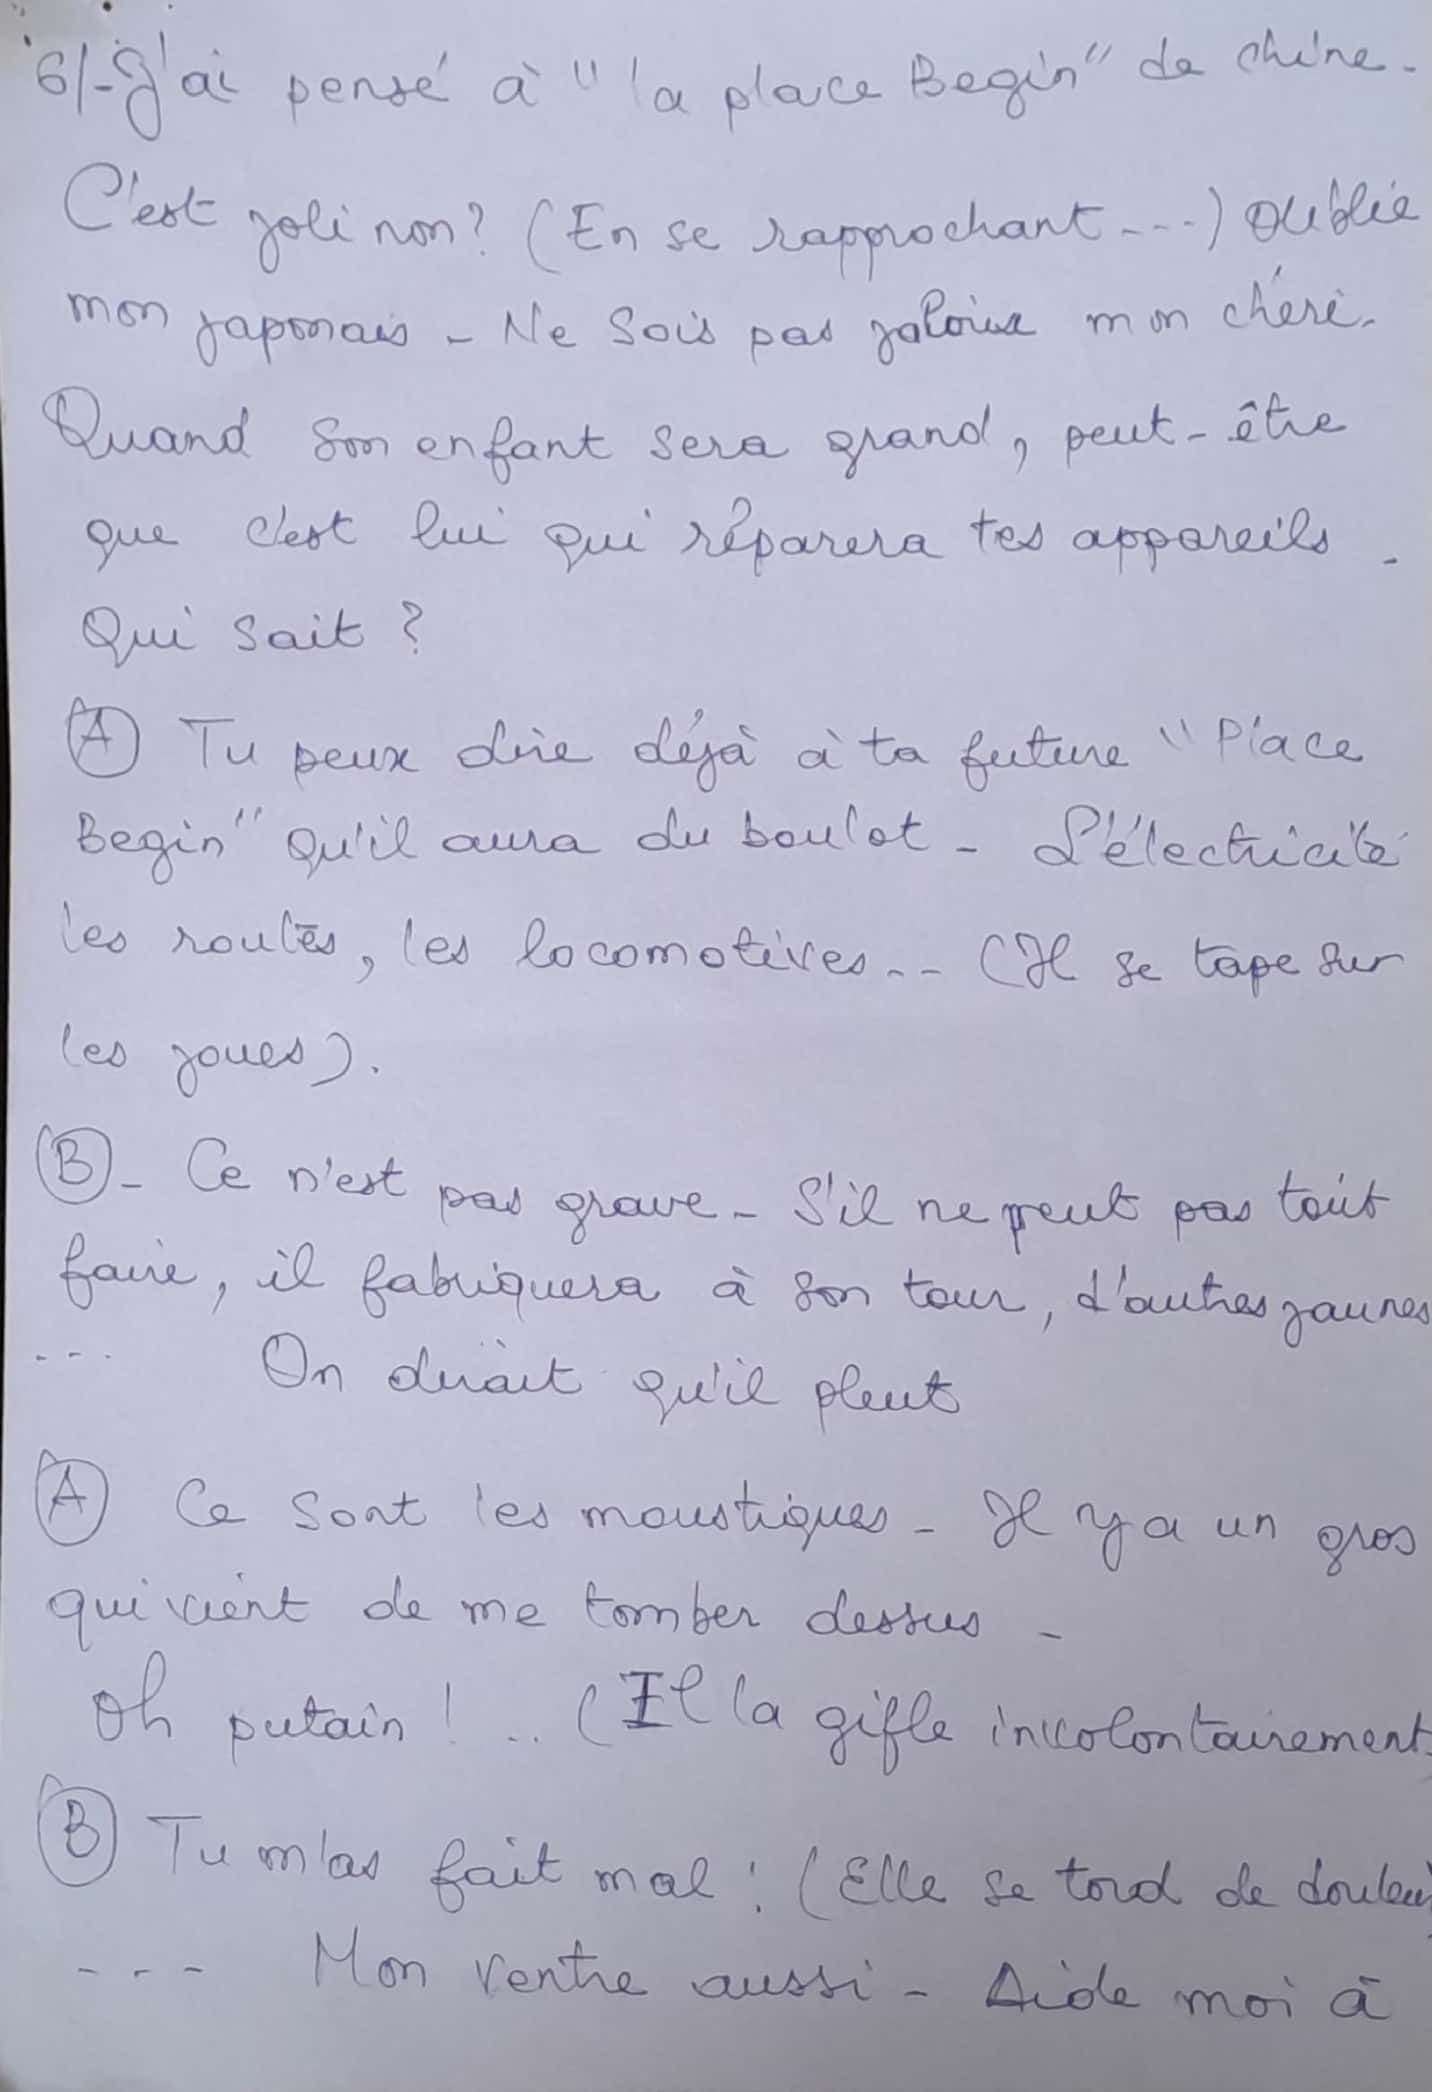 6/- J'ai pensé à "la place Begin" de chine.
C'est joli non? (En se rapprochant ---) oublie
mon japonais - Ne sois pas jaloux mon chéri.
Quand son enfant sera grand, peut-être
que c'est lui qui réparera tes appareils.
Qui sait?
(A) Tu peux dire déjà à ta future "Place
Begin" qu'il aura du boulot - L'électricité
les routes, les locomotives.. (Il se tape sur
les joues).
(B) - Ce n'est pas grave - S'il ne peut pas tout
faire, il fabriquera à son tour, d'autres jaunes
--- On dirait qu'il pleut
(A) Ce sont les moustiques - Il y a un gros
qui vient de me tomber dessus -
Oh putain! .. (Il la gifle involontairement
(B) Tu m'as fait mal! (Elle se tord de douleur)
--- Mon ventre aussi - Aide moi à